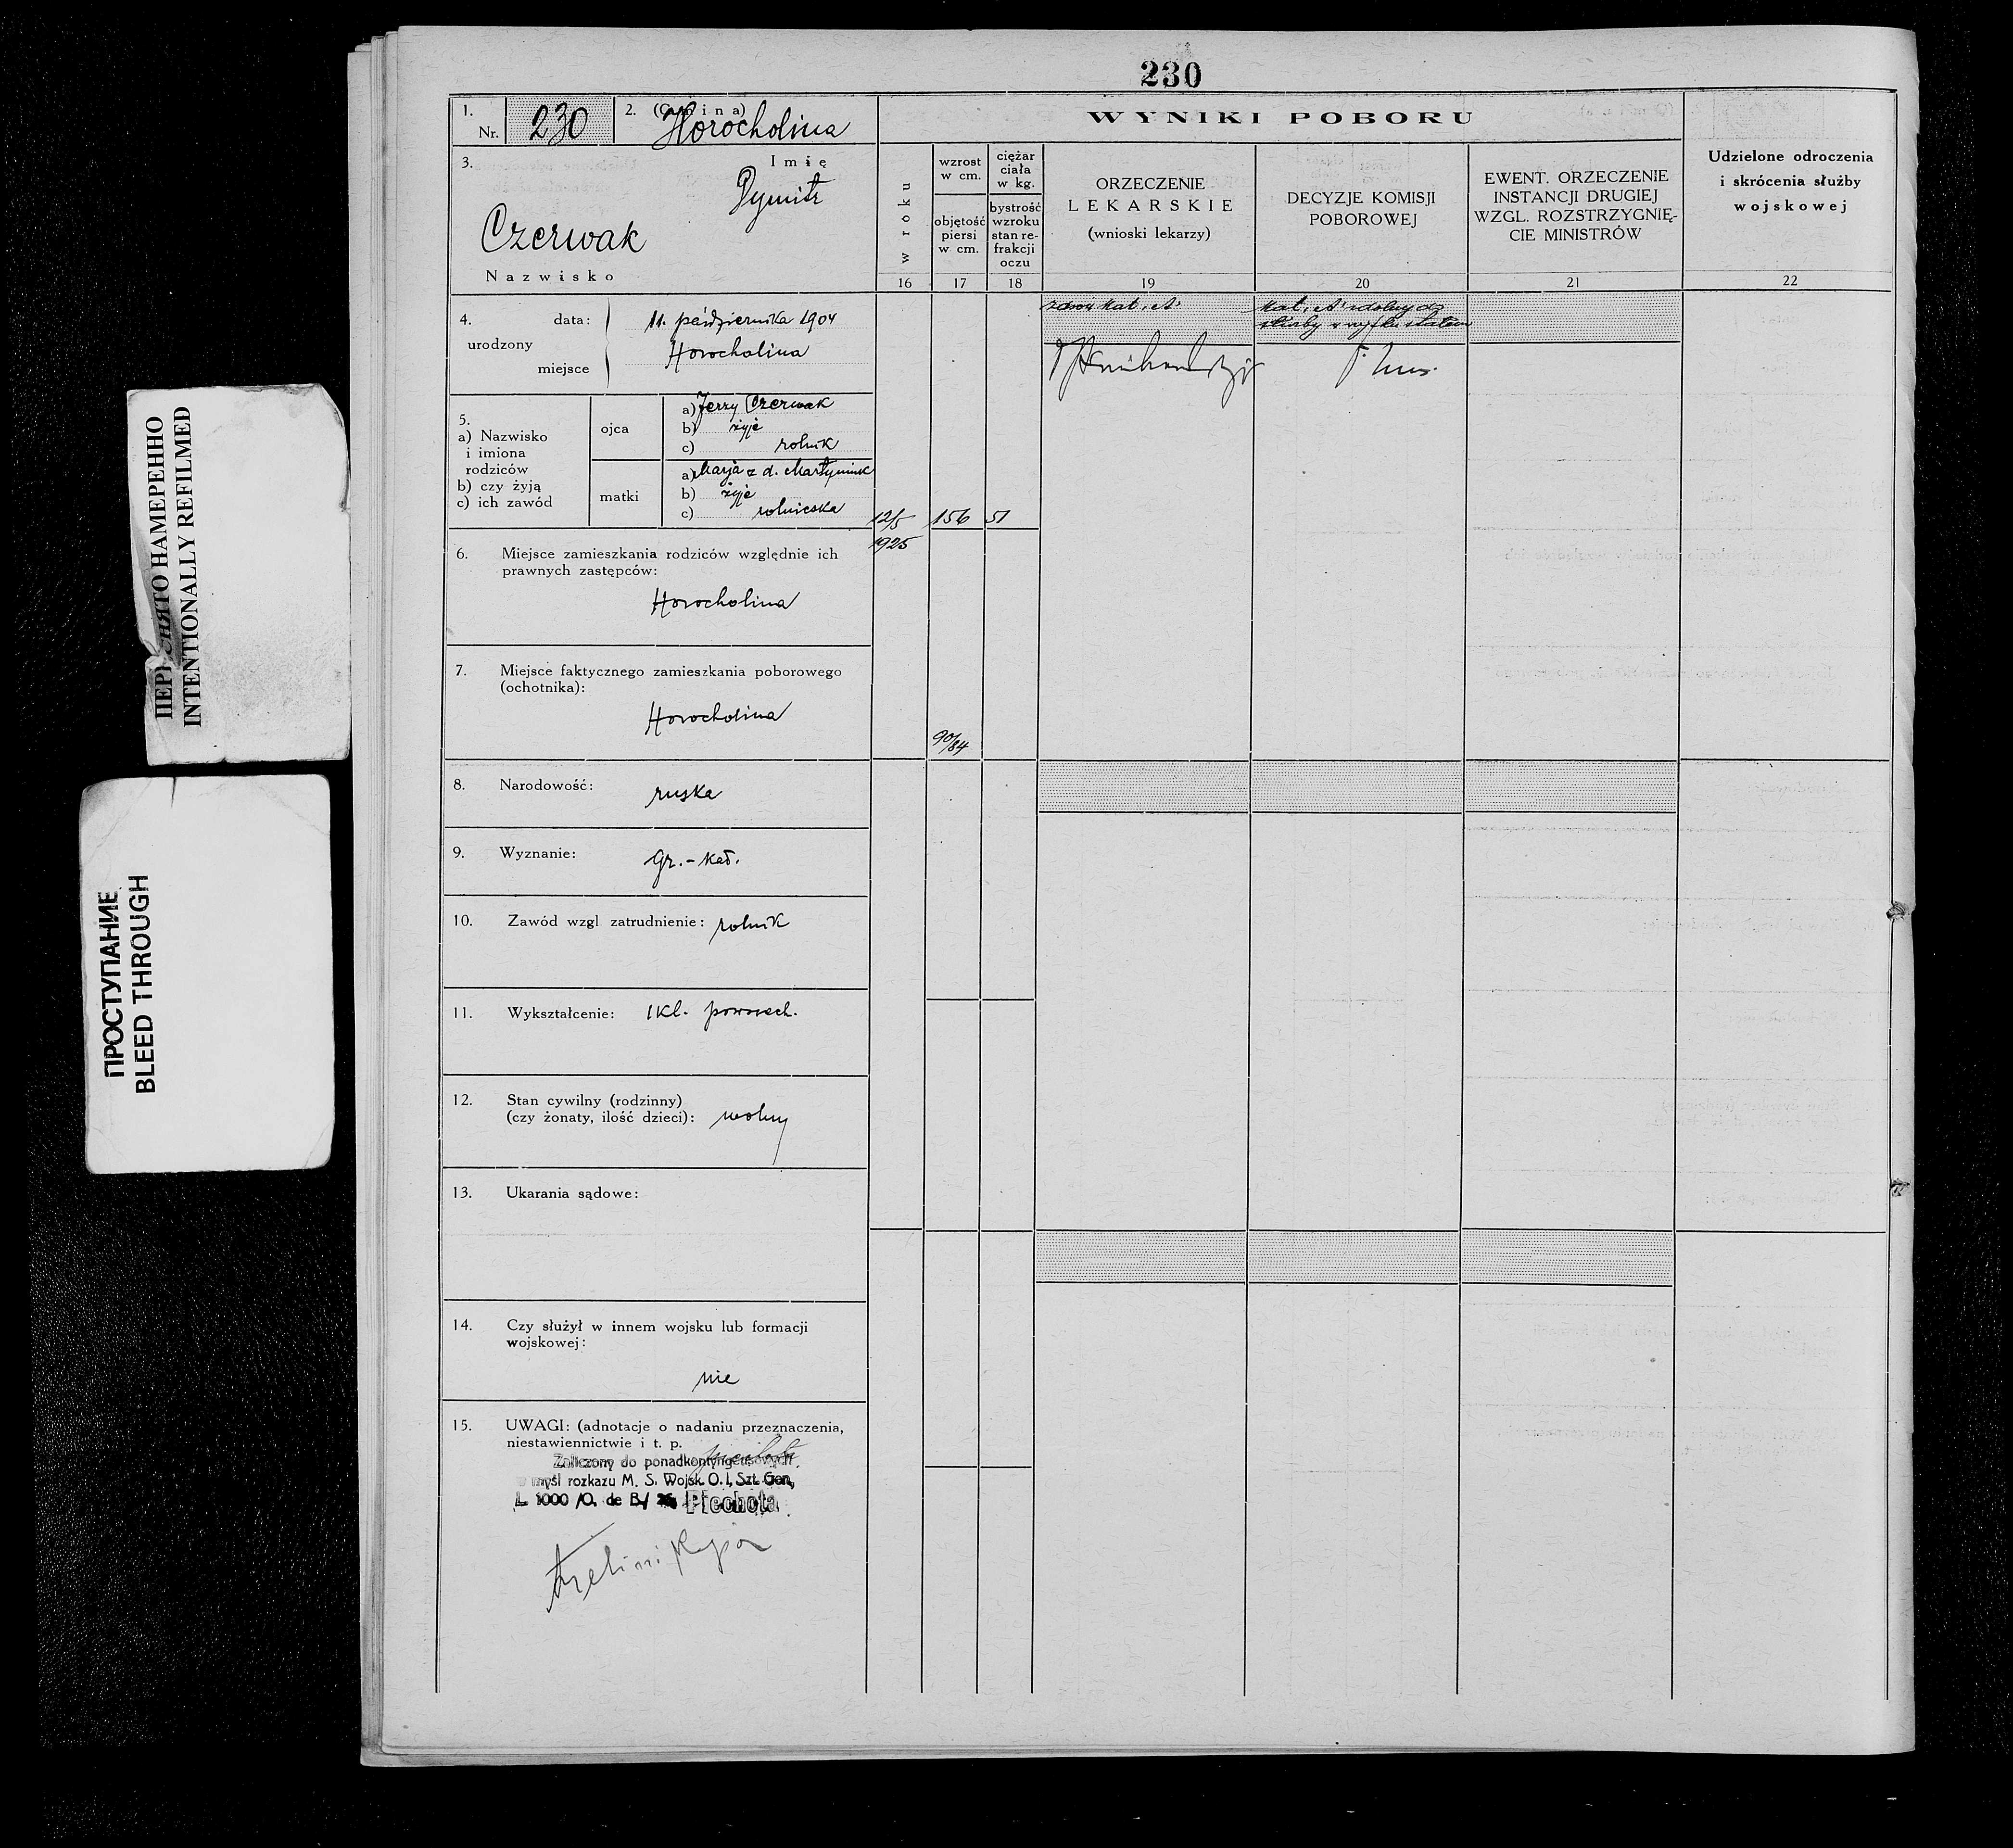 230
1.
Nr. 230
2. (Gmina)
Horocholina
3.
Imię
Dymitr
Czerwak
Nazwisko
4. urodzony
data: 11. października 1904
miejsce Horocholina
5.
a) Nazwisko
i imiona
rodziców
b) czy żyją
c) ich zawód
ojca
a) Jerzy Czerwak
b) żyje
c) rolnik
matki
a) Marja z d. Martyniuk
b) żyje
c) rolniczka
6. Miejsce zamieszkania rodziców względnie ich
prawnych zastępców:
Horocholina
7. Miejsce faktycznego zamieszkania poborowego
(ochotnika):
Horocholina
8. Narodowość: ruska
9. Wyznanie: Gr.-kat.
10. Zawód wzgl zatrudnienie: rolnik
11. Wykształcenie: 1 kl. powszech.
12. Stan cywilny (rodzinny)
(czy żonaty, ilość dzieci): wolny
13. Ukarania sądowe:
14. Czy służył w innem wojsku lub formacji
wojskowej:
nie
15. UWAGI: (adnotacje o nadaniu przeznaczenia,
niestawiennictwie i t. p.
Zaliczony do ponadkontyngensowych
w myśl rozkazu M. S. Wojsk. O. I, Szt. Gen,
L. 1000 /O. de B/ Piechota
WYNIKI POBORU
w roku
16
wzrost
w cm.
objętość
piersi
w cm.
17
ciężar
ciała
w kg.
bystrość
wzroku
stan re-
frakcji
oczu
18
ORZECZENIE
LEKARSKIE
(wnioski lekarzy)
19
DECYZJE KOMISJI
POBOROWEJ
20
EWENT. ORZECZENIE
INSTANCJI DRUGIEJ
WZGL. ROZSTRZYGNIĘ-
CIE MINISTRÓW
21
Udzielone odroczenia
i skrócenia służby
wojskowej
22
12/5
1925
156
51
90/84
zdrów kat. "A"
kat. "A" zdolny do
służby w wojsku stałem
ПЕРЕСНЯТО НАМЕРЕННО
INTENTIONALLY REFILMED
ПРОСТУПАНИЕ
BLEED THROUGH